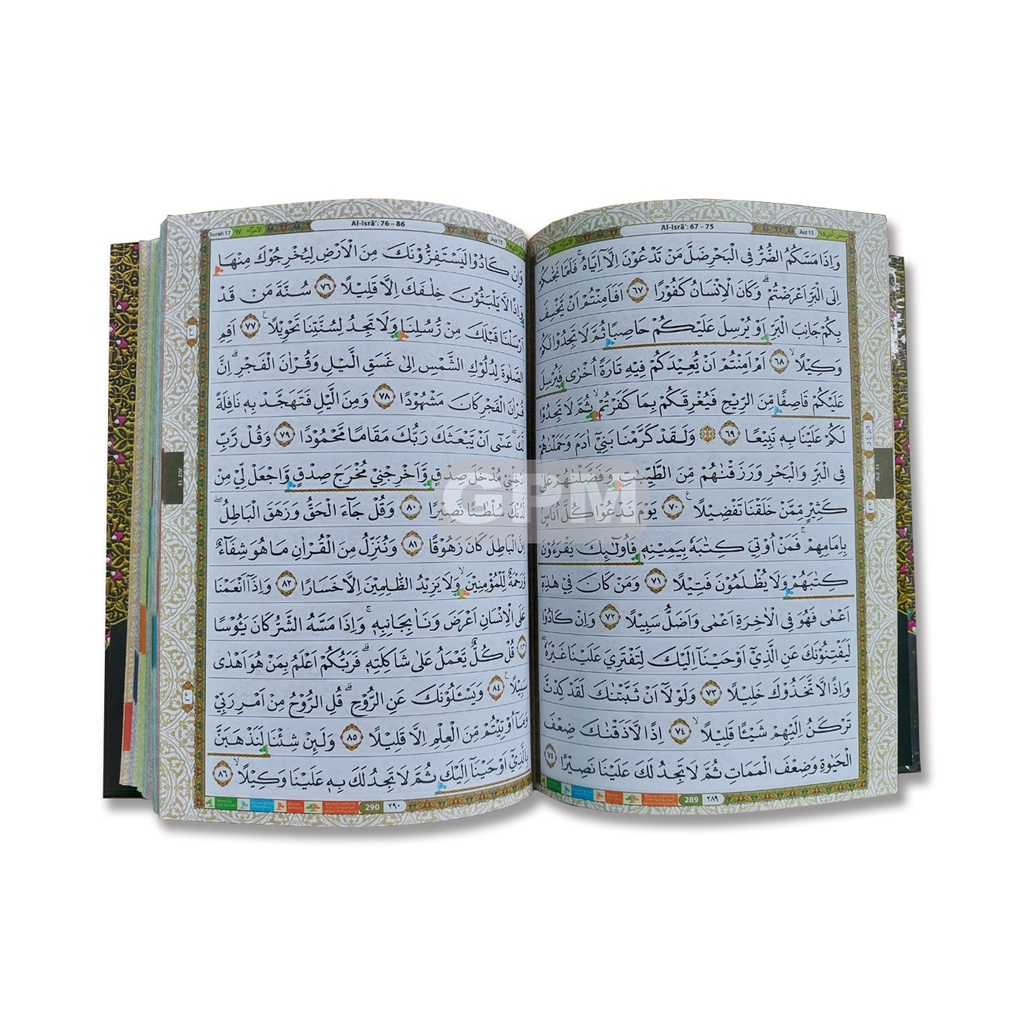 Al-Isrā': 67 – 75
Juz 15
وَاِذَا مَسَّكُمُ الضُّرُّ فِى الْبَحْرِ ضَلَّ مَنْ تَدْعُوْنَ اِلَّآ اِيَّاهُۚ فَلَمَّا نَجّٰىكُمْ
اِلَى الْبَرِّ اَعْرَضْتُمْۗ وَكَانَ الْاِنْسَانُ كَفُوْرًا ٦٧ اَفَاَمِنْتُمْ اَنْ يَّخْسِفَ
بِكُمْ جَانِبَ الْبَرِّ اَوْ يُرْسِلَ عَلَيْكُمْ حَاصِبًا ثُمَّ لَا تَجِدُوْا لَكُمْ
وَكِيْلًاۙ ٦٨ اَمْ اَمِنْتُمْ اَنْ يُّعِيْدَكُمْ فِيْهِ تَارَةً اُخْرٰى فَيُرْسِلَ
عَلَيْكُمْ قَاصِفًا مِّنَ الرِّيْحِ فَيُغْرِقَكُمْ بِمَا كَفَرْتُمْۙ ثُمَّ لَا تَجِدُوْا
لَكُمْ عَلَيْنَا بِهٖ تَبِيْعًا ٦٩ ۞ وَلَقَدْ كَرَّمْنَا بَنِيْٓ اٰدَمَ وَحَمَلْنٰهُمْ
فِى الْبَرِّ وَالْبَحْرِ وَرَزَقْنٰهُمْ مِّنَ الطَّيِّبٰتِ وَفَضَّلْنٰهُمْ عَلٰى
كَثِيْرٍ مِّمَّنْ خَلَقْنَا تَفْضِيْلًاۚ ٧٠ يَوْمَ نَدْعُوْا كُلَّ اُنَاسٍۢ
بِاِمَامِهِمْۚ فَمَنْ اُوْتِيَ كِتٰبَهٗ بِيَمِيْنِهٖ فَاُولٰۤىِٕكَ يَقْرَءُوْنَ
كِتٰبَهُمْ وَلَا يُظْلَمُوْنَ فَتِيْلًا ٧١ وَمَنْ كَانَ فِيْ هٰذِهٖٓ
اَعْمٰى فَهُوَ فِى الْاٰخِرَةِ اَعْمٰى وَاَضَلُّ سَبِيْلًا ٧٢ وَاِنْ كَادُوْا
لَيَفْتِنُوْنَكَ عَنِ الَّذِيْٓ اَوْحَيْنَآ اِلَيْكَ لِتَفْتَرِيَ عَلَيْنَا غَيْرَهٗۖ
وَاِذًا لَّاتَّخَذُوْكَ خَلِيْلًا ٧٣ وَلَوْلَآ اَنْ ثَبَّتْنٰكَ لَقَدْ كِدْتَّ
تَرْكَنُ اِلَيْهِمْ شَيْـًٔا قَلِيْلًاۙ ٧٤ اِذًا لَّاَذَقْنٰكَ ضِعْفَ
الْحَيٰوةِ وَضِعْفَ الْمَمَاتِ ثُمَّ لَا تَجِدُ لَكَ عَلَيْنَا نَصِيْرًا ٧٥
289 ٢٨٩
Surah 17 ١٧ الاسراء
Al-Isrā': 76 – 86
Juz 15
وَاِنْ كَادُوْا لَيَسْتَفِزُّوْنَكَ مِنَ الْاَرْضِ لِيُخْرِجُوْكَ مِنْهَا
وَاِذًا لَّا يَلْبَثُوْنَ خِلٰفَكَ اِلَّا قَلِيْلًا ٧٦ سُنَّةَ مَنْ قَدْ
اَرْسَلْنَا قَبْلَكَ مِنْ رُّسُلِنَا وَلَا تَجِدُ لِسُنَّتِنَا تَحْوِيْلًاۚ ٧٧ اَقِمِ
الصَّلٰوةَ لِدُلُوْكِ الشَّمْسِ اِلٰى غَسَقِ الَّيْلِ وَقُرْاٰنَ الْفَجْرِۗ اِنَّ
قُرْاٰنَ الْفَجْرِ كَانَ مَشْهُوْدًا ٧٨ وَمِنَ الَّيْلِ فَتَهَجَّدْ بِهٖ نَافِلَةً
لَّكَۖ عَسٰٓى اَنْ يَّبْعَثَكَ رَبُّكَ مَقَامًا مَّحْمُوْدًا ٧٩ وَقُلْ رَّبِّ
اَدْخِلْنِيْ مُدْخَلَ صِدْقٍ وَّاَخْرِجْنِيْ مُخْرَجَ صِدْقٍ وَّاجْعَلْ لِّيْ مِنْ
لَّدُنْكَ سُلْطٰنًا نَّصِيْرًا ٨٠ وَقُلْ جَاۤءَ الْحَقُّ وَزَهَقَ الْبَاطِلُۖ
اِنَّ الْبَاطِلَ كَانَ زَهُوْقًا ٨١ وَنُنَزِّلُ مِنَ الْقُرْاٰنِ مَا هُوَ شِفَاۤءٌ
وَّرَحْمَةٌ لِّلْمُؤْمِنِيْنَۙ وَلَا يَزِيْدُ الظّٰلِمِيْنَ اِلَّا خَسَارًا ٨٢ وَاِذَآ اَنْعَمْنَا
عَلَى الْاِنْسَانِ اَعْرَضَ وَنَاٰ بِجَانِبِهٖۚ وَاِذَا مَسَّهُ الشَّرُّ كَانَ يَـُٔوْسًا
٨٣ قُلْ كُلٌّ يَّعْمَلُ عَلٰى شَاكِلَتِهٖۗ فَرَبُّكُمْ اَعْلَمُ بِمَنْ هُوَ اَهْدٰى
سَبِيْلًا ٨٤ وَيَسْـَٔلُوْنَكَ عَنِ الرُّوْحِۗ قُلِ الرُّوْحُ مِنْ اَمْرِ رَبِّيْ
وَمَآ اُوْتِيْتُمْ مِّنَ الْعِلْمِ اِلَّا قَلِيْلًا ٨٥ وَلَىِٕنْ شِئْنَا لَنَذْهَبَنَّ
بِالَّذِيْٓ اَوْحَيْنَآ اِلَيْكَ ثُمَّ لَا تَجِدُ لَكَ بِهٖ عَلَيْنَا وَكِيْلًاۙ ٨٦
290 ٢٩٠
GPM